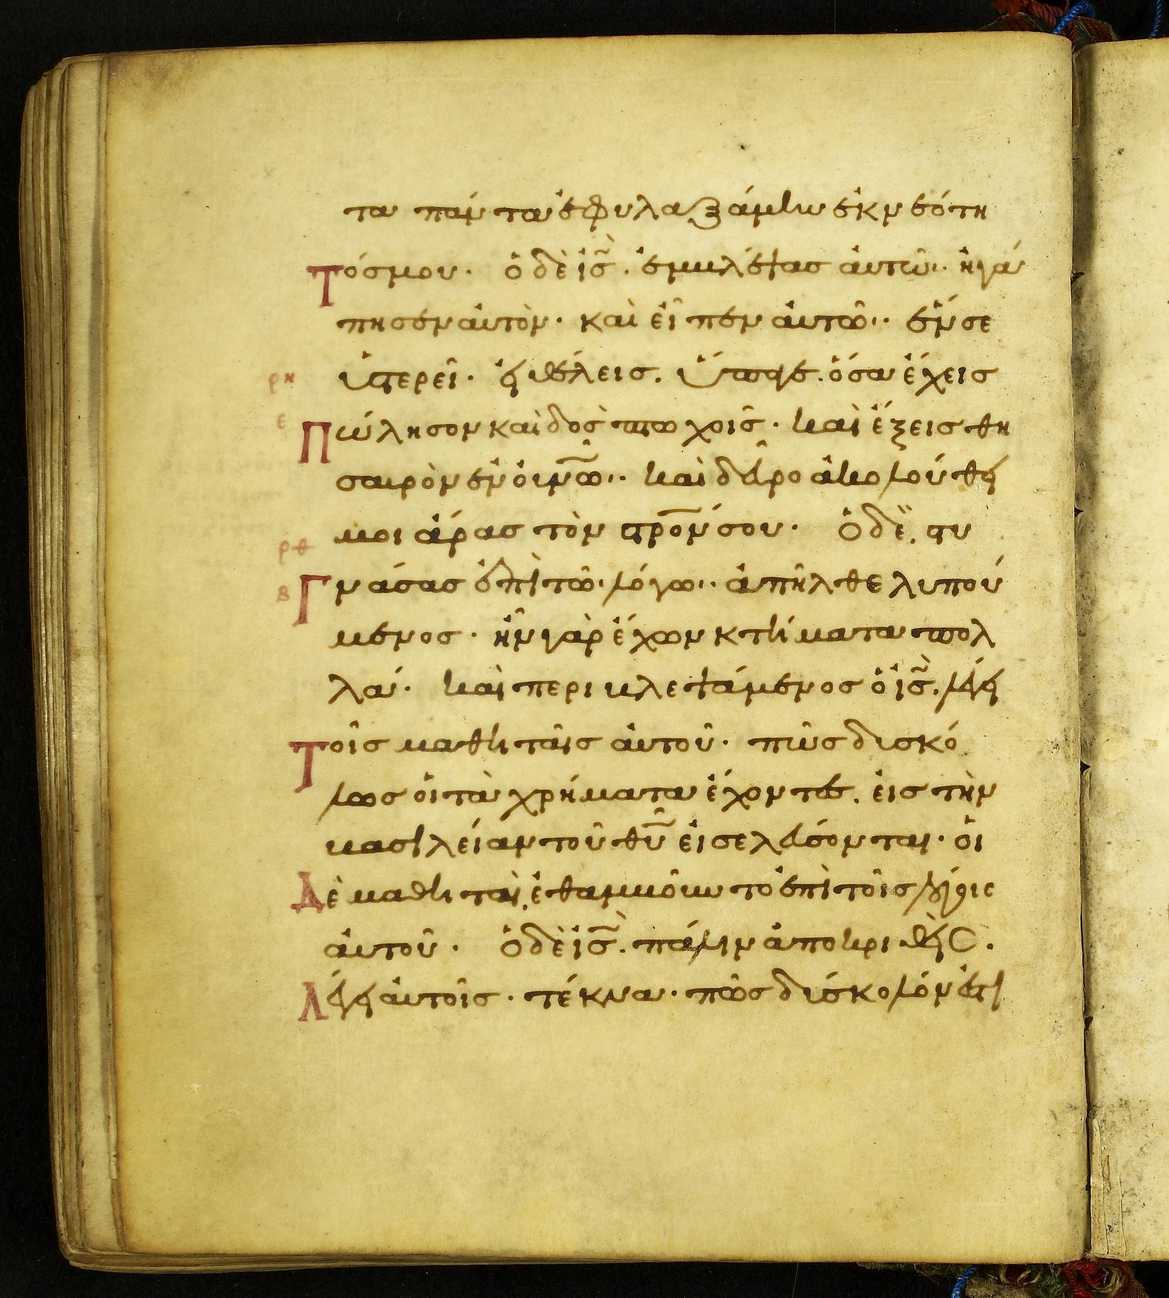 τα πάντα ἐφυλαξάμην ἐκ νεότη
τόσμου· ὁ δὲ ἰς̄. ἐμβλέψας αὐτῶ·. ἠγά
πησεν αὐτὸν· καὶ εἶπεν αὐτῶ·. ἕν σε
ρη ὑστερεῖ· εἰ θέλεις. ὕπαγε. ὅσα ἔχεις
ε Πώλησον καὶ δὸς πτωχοῖς· καὶ ἕξεις θη
σαυρὸν ἐν οὐνῶ·. καὶ δεῦρο ἀκολούθει
μοι ἄρας τὸν σρον σου· Ὁ δὲ. στυ
ρθ
β Γνάσας ἐπὶ τῶ· λόγω·. ἀπῆλθε λυπού
μενος· ἦν γὰρ ἔχων κτήματα πολ
λά· καὶ περιβλεψάμενος ὁ ἰς̄. λέγει
Τοῖς μαθηταῖς αὐτοῦ· πῶς δυσκό
λως οἱ τὰ χρήματα ἔχοντες. εἰς τὴν
βασιλείαν τοῦ θῦ εἰσελεύσονται· οἱ
Δὲ μαθηταὶ. ἐθαμβοῦντο ἐπὶ τοῖς λόγοις
αὐτοῦ· Ὁ δὲ ἰς̄. πάλιν ἀποκριθεὶς.
Λέγει αὐτοῖς· τέκνα· πῶς δύσκολόν ἐστι